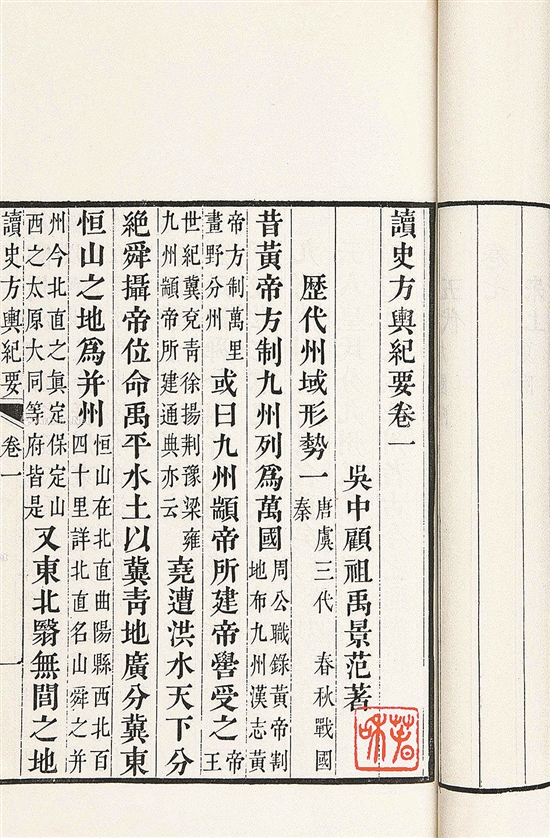 讀史方輿紀要卷一
吳中顧祖禹景范著
歷代州域形勢一
唐虞三代 春秋戰國
秦
昔黃帝方制九州列爲萬國
周公職錄黃帝割
地布九州漢志黃
帝方制萬里
畫野分州
或曰九州顓帝所建帝嚳受之
帝
王
世紀冀兗青徐揚荆豫梁雍
九州顓帝所建通典亦云
堯遭洪水天下分
絶舜攝帝位命禹平水土以冀青地廣分冀東
恒山之地爲并州
恒山在北直曲陽縣西北百
四十里詳北直名山舜之并
州今北直之眞定保定山
西之太原大同等府皆是
又東北醫無閭之地
讀史方輿紀要 卷一